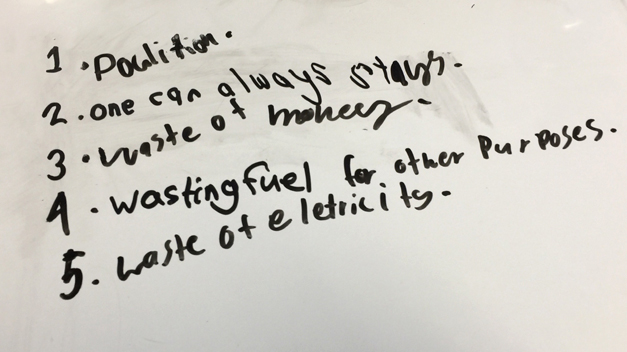 1. Poulition.
2. one can always stays.
3. waste of money.
4. wasting fuel for other purposes.
5. waste of eletricity.